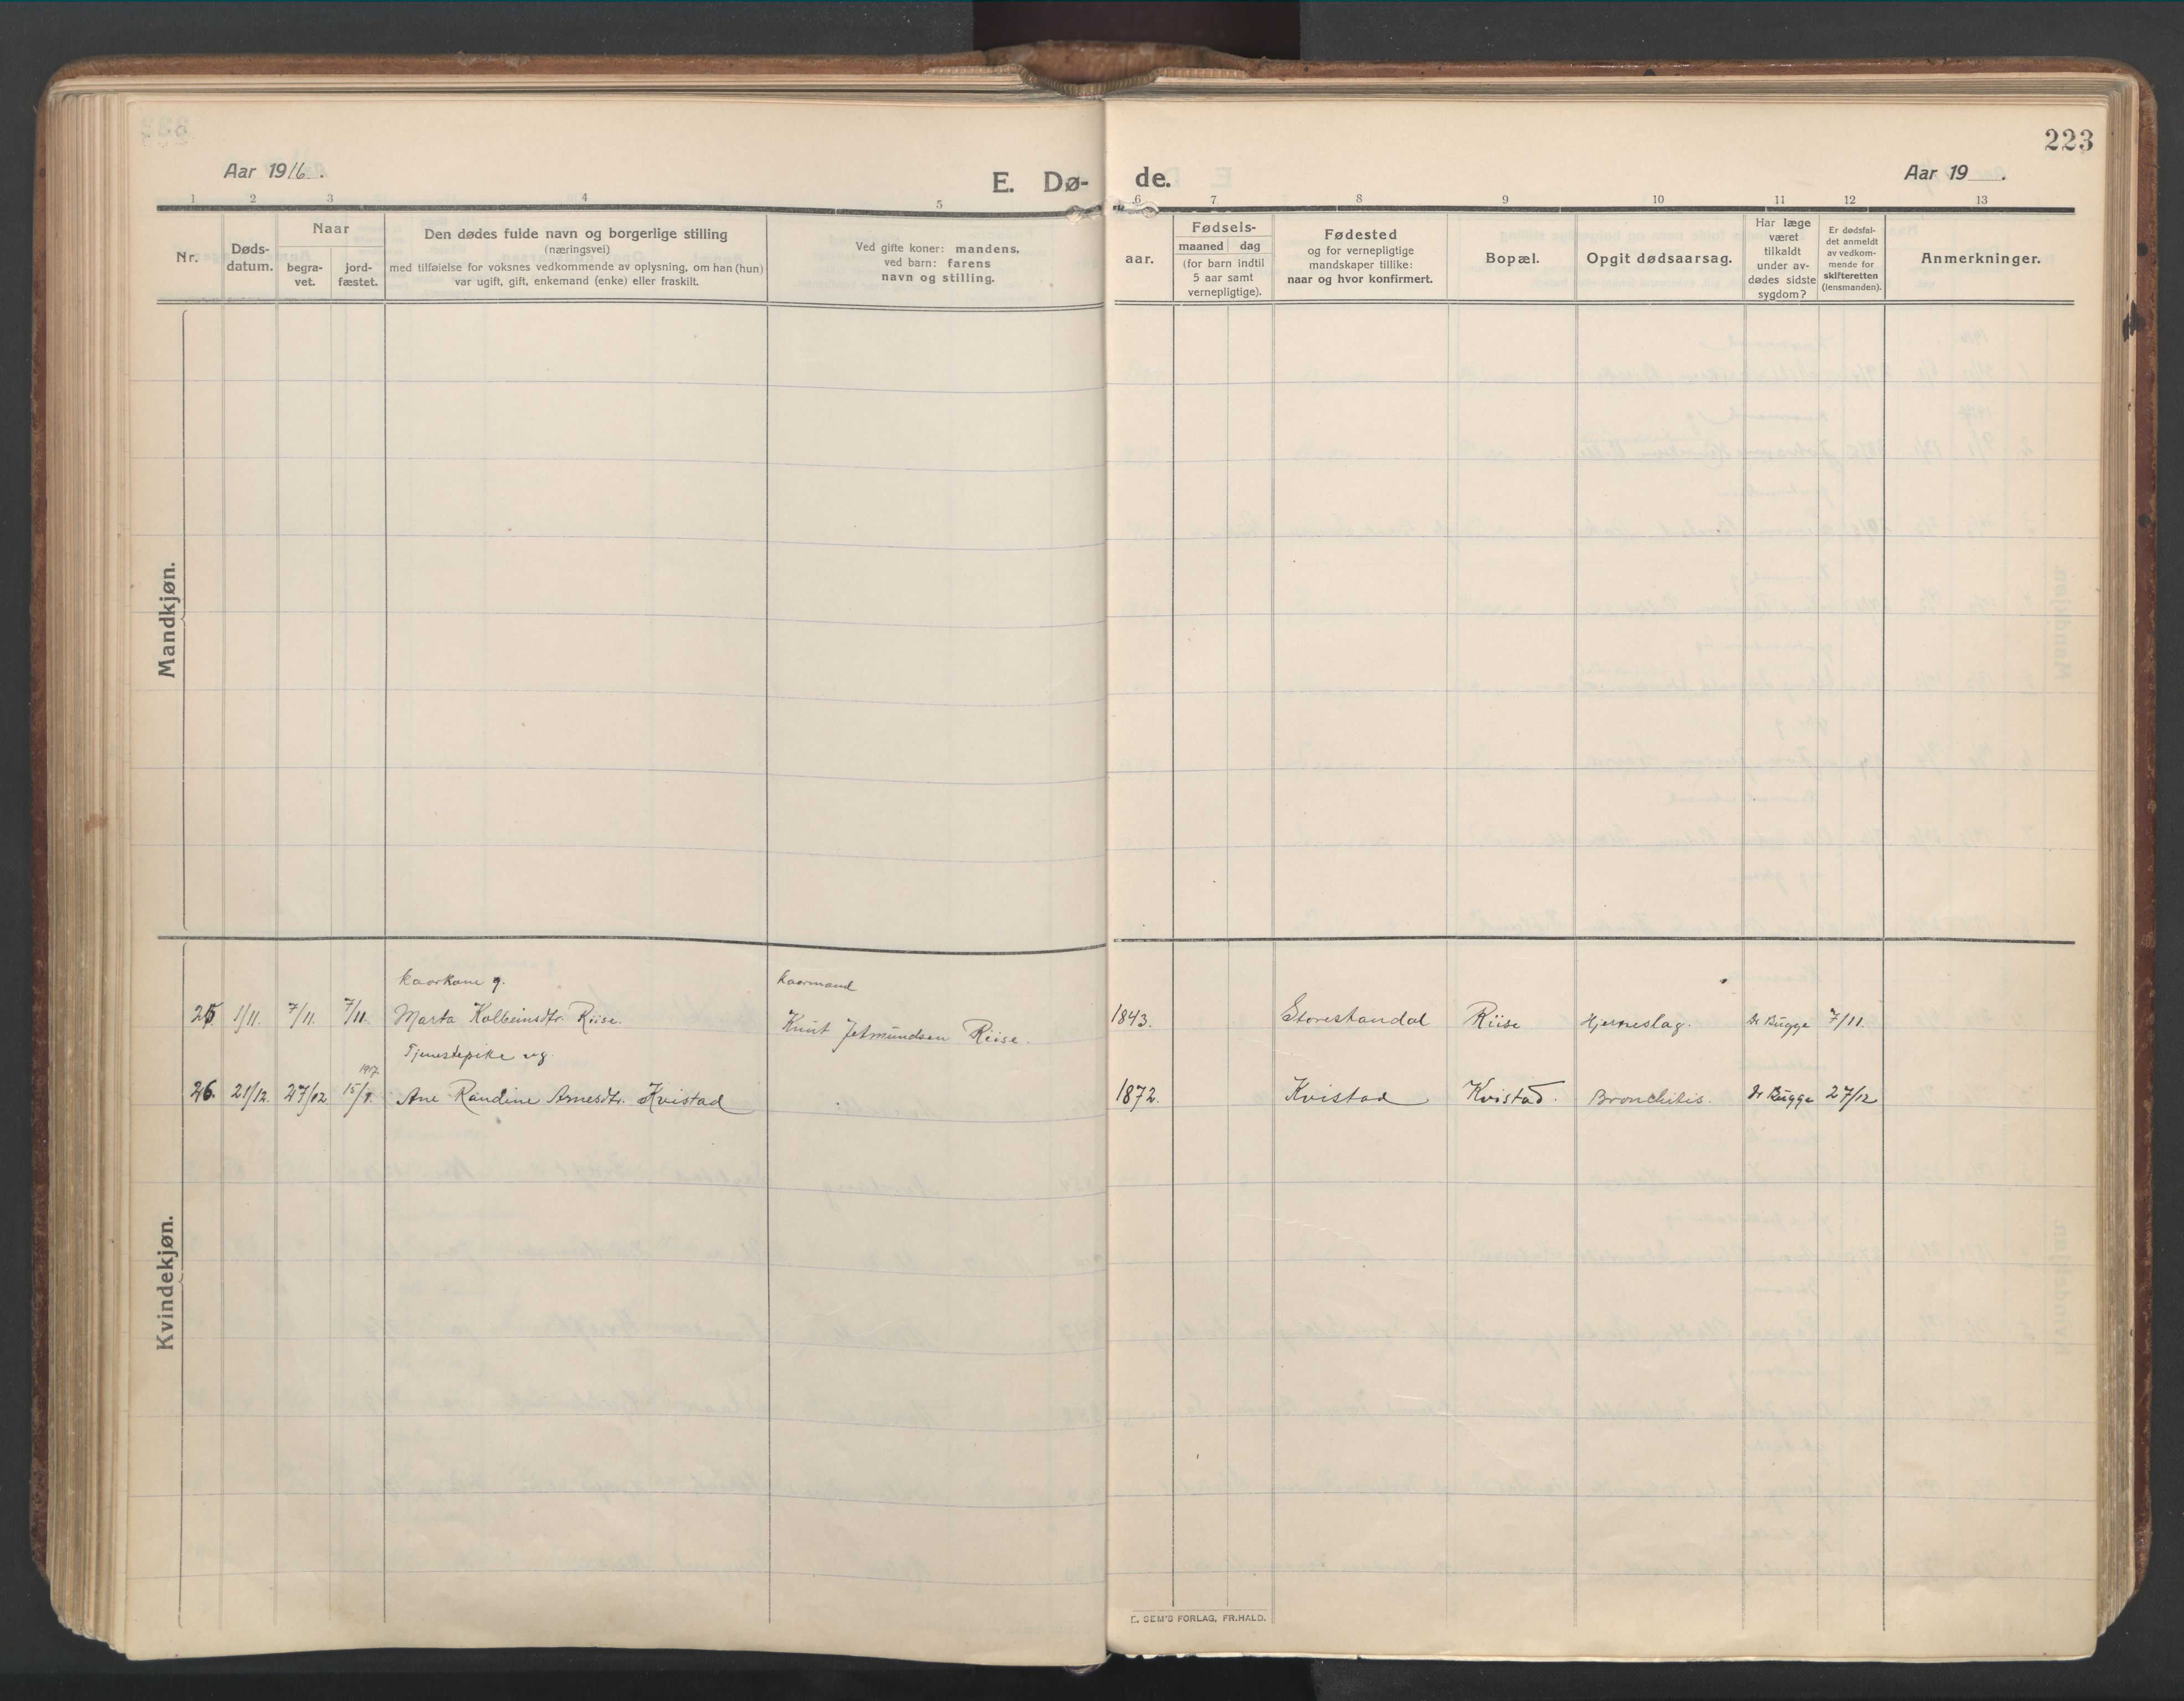 223
Aar 1916.
E. Dø- de.
Aar 19 .
1 2 3 4 5 6 7 8 9 10 11 12 13
Nr.
Døds-
datum.
Naar
begra-
vet.
jord-
fæstet.
Den dødes fulde navn og borgerlige stilling
(næringsvei)
med tilføielse for voksnes vedkommende av oplysning, om han (hun)
var ugift, gift, enkemand (enke) eller fraskilt.
Ved gifte koner: mandens,
ved barn: farens
navn og stilling.
aar.
Fødsels-
maaned dag
(for barn indtil
5 aar samt
vernepligtige).
Fødested
og for vernepligtige
mandskaper tillike:
naar og hvor konfirmert.
Bopæl.
Opgit dødsaarsag.
Har læge
været
tilkaldt
under av-
dødes sidste
sygdom?
Er dødsfal-
det anmeldt
av vedkom-
mende for
skifteretten
(lensmanden).
Anmerkninger.
Mandkjøn.
Kvindekjøn.
kaarkone g. kaarmand
25 1/11. 7/11. 7/11 Marta Kolbeinsdtr. Riise. Knut Jetmundsen Riise. 1843. Storestandal Riise Hjerneslag. Dr Bugge 7/11.
Tjenestepike ug.
1917
26. 21/12. 27/12 15/1. Ane Randine Arnesdtr. Kvistad 1872. Kvistad Kvistad. Bronchitis. Dr Bugge 27/12
E. SEM'S FORLAG, FR.HALD.